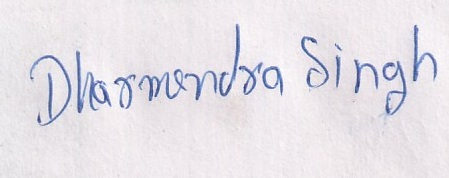 Dharmendra Singh